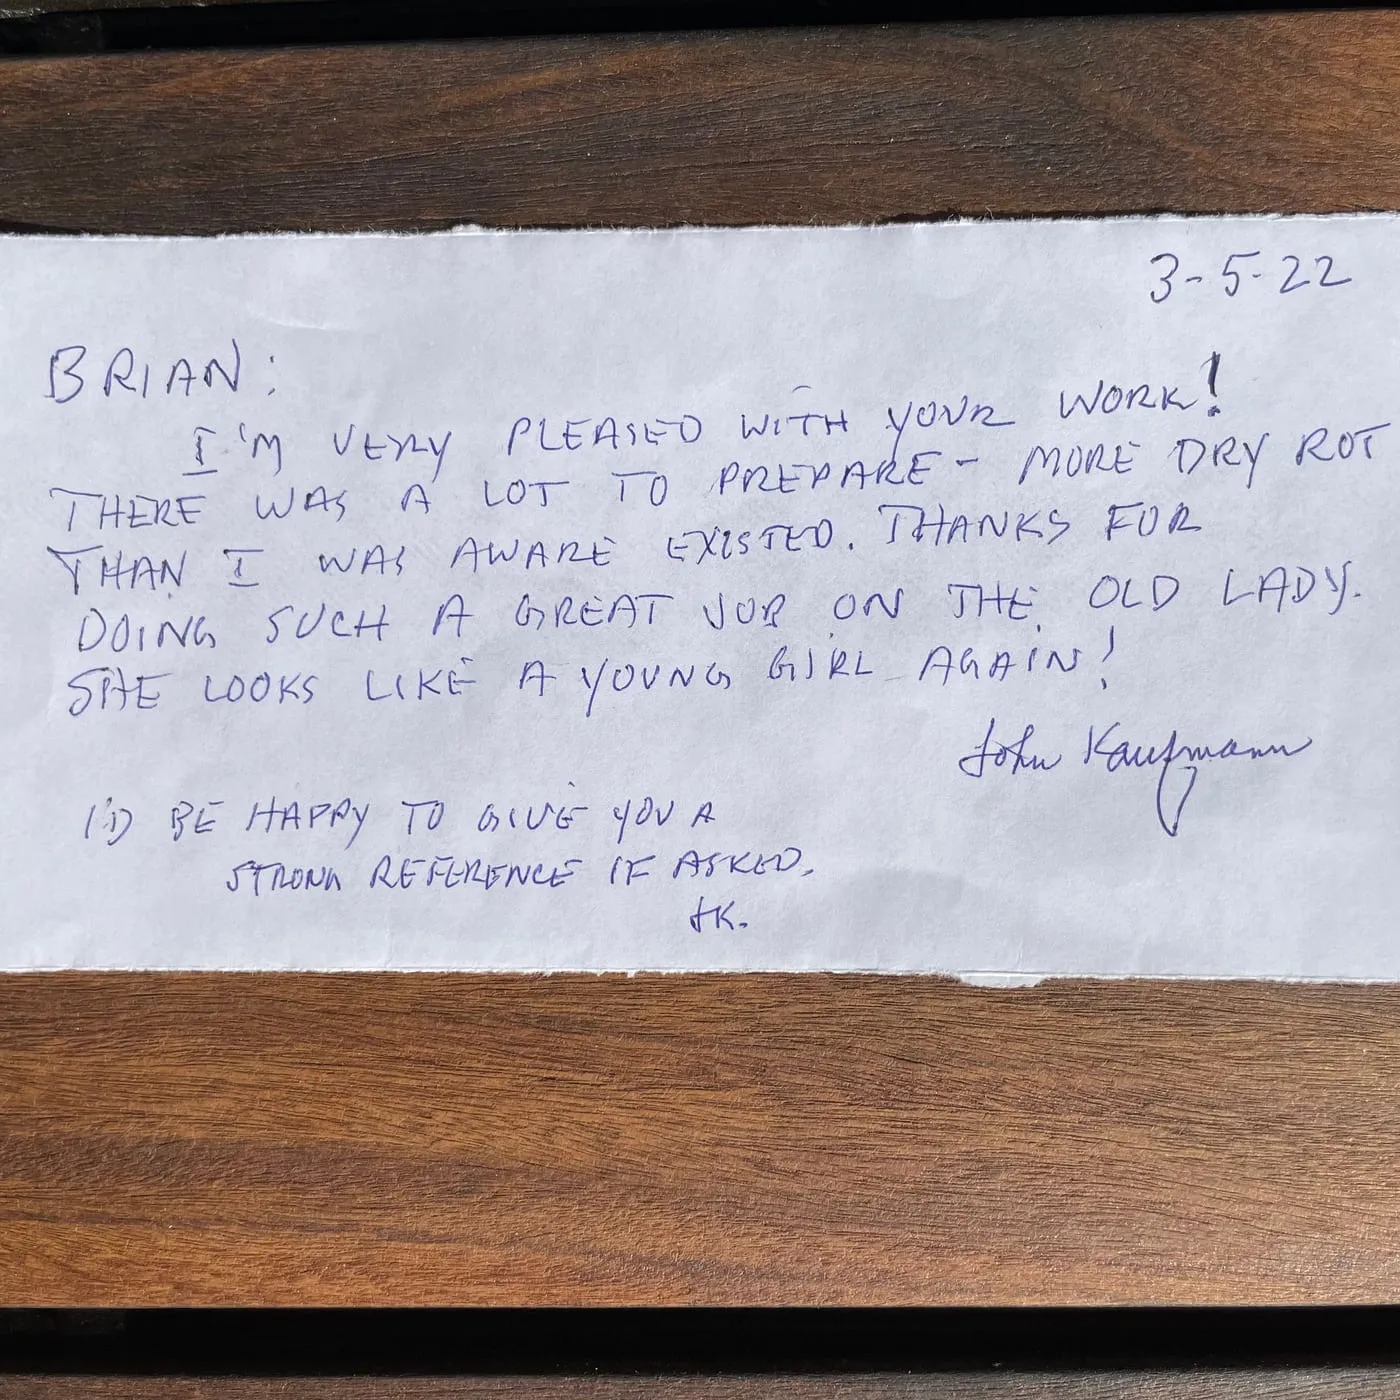 3-5-22
BRIAN:
I'M VERY PLEASED WITH YOUR WORK!
THERE WAS A LOT TO PREPARE - MORE DRY ROT
THAN I WAS AWARE EXISTED. THANKS FOR
DOING SUCH A GREAT JOB ON THE OLD LADY.
SHE LOOKS LIKE A YOUNG GIRL AGAIN!
John Kaufmann
I'D BE HAPPY TO GIVE YOU A
STRONG REFERENCE IF ASKED.
JK.